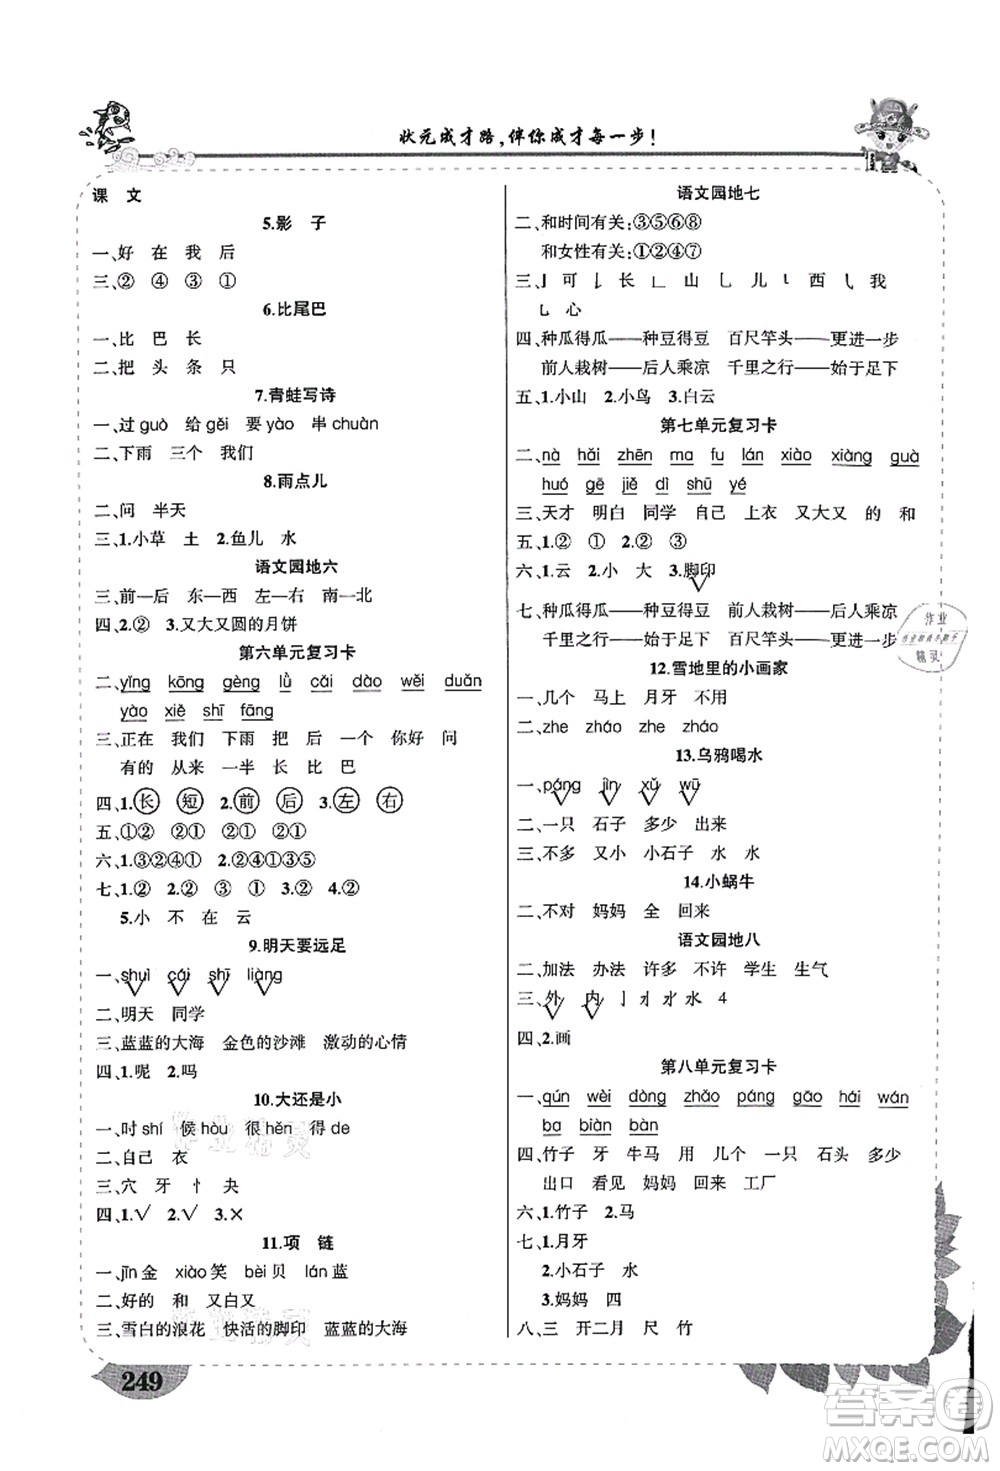 状元成才路,伴你成才每一步!
课 文
5.影 子
一、好 在 我 后
三、② ④ ③ ①
6.比尾巴
一、比 巴 长
二、把 头 条 只
7.青蛙写诗
一、过 guò 给 gěi 要 yào 串 chuàn
二、下雨 三个 我们
8.雨点儿
二、问 半天
三、1.小草 土 2.鱼儿 水
语文园地六
三、前—后 东—西 左—右 南—北
四、2.② 3.又大又圆的月饼
第六单元复习卡
二、yǐng kōng gèng lǜ cǎi dào wěi duǎn
yào xiě shī fāng
三、正在 我们 下雨 把 后 一个 你好 问
有的 从来 一半 长 比 巴
四、1.长 短 2.前 后 3.左 右
五、①② ②① ②①
六、1.③②④① 2.④①②③⑤
七、1.② 2.① 3.② 4.②
5.小 不 在 云
9.明天要远足
一、shuì cái shī liàng
二、明天 同学
三、蓝蓝的大海 金色的沙滩 激动的心情
四、1.呢 2.吗
10.大还是小
一、时 shí 候 hòu 很 hěn 得 de
二、自己 衣
三、穴 牙 忄 夬
四、1.√ 2.√ 3.×
11.项 链
一、jīn 金 xiào 笑 bèi 贝 lán 蓝
二、好的 和 又白又
三、雪白的浪花 快活的脚印 蓝蓝的大海
249
语文园地七
二、和时间有关:③⑤⑥⑧
和女性有关:①②④⑦
三、亅 可 ㇙ 长 ㇄ 山 ㇟ 儿 ㇄ 西 ㇂ 我
㇃ 心
四、种瓜得瓜——种豆得豆 百尺竿头——更进一步
前人栽树——后人乘凉 千里之行——始于足下
五、1.小山 2.小鸟 3.白云
第七单元复习卡
二、nà hǎi zhēn ma fu lán xiào xiàng guà
huó gē jiě dì shū yé
三、天才 明白 同学 自己 上衣 又大又 的 和
五、1.② ① 2.② ③
六、1.云 2.小 大 3.脚印
七、种瓜得瓜——种豆得豆 前人栽树——后人乘凉
千里之行——始于足下 百尺竿头——更进一步
12.雪地里的小画家
一、几个 马上 月牙 不用
二、zhe zháo zhe zháo
13.乌鸦喝水
一、páng jìn xǔ wū
二、一只 石子 多少 出来
三、不多 又小 小石子 水 水
14.小蜗牛
二、不对 妈妈 全 回来
语文园地八
二、加法 办法 许多 不许 学生 生气
三、外 内 亅 水 4
四、2.画
第八单元复习卡
一、qún wèi dòng zhǎo páng gāo hái wán
ba biàn bàn
四、竹子 牙 牛马 用 几个 一只 石头 多少
出口 看见 妈妈 回来 工厂
六、1.竹子 2.马
七、1.月牙
2.小石子 水
3.妈妈 四
八、三 开二月 尺 竹
作业
精灵
答案圈
MXQE.COM